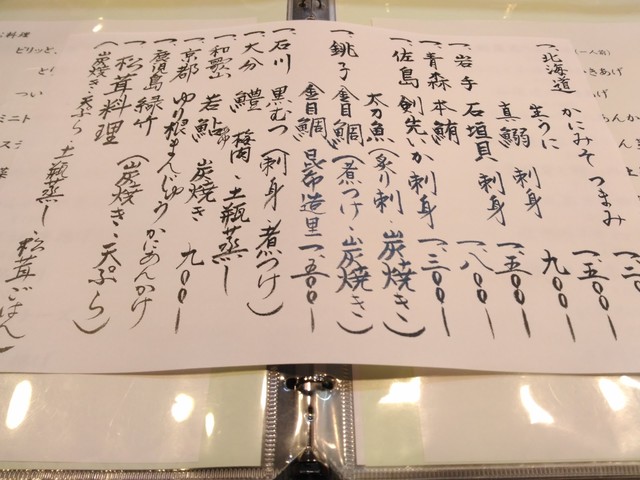 一、北海道 かにみそつまみ 一、五〇〇ー
生うに 九〇〇ー
真鰯 刺身 一、五〇〇ー
一、岩手 石垣貝 刺身 一、八〇〇ー
一、青森 本鮪
一、佐島 剣先いか刺身 一、三〇〇ー
太刀魚(炙り刺・炭焼き)
一、銚子 金目鯛(煮つけ・炭焼き)
金目鯛 昆布造里 一、五〇〇ー
一、石川 黒むつ(刺身・煮つけ)
一、大分 鱧 梅肉・土瓶蒸し
一、和歌山 若鮎 炭焼き 九〇〇ー
一、京都 ゆり根まんじゅう かにあんかけ
一、鹿児島 緑竹
一、松茸料理(炭焼き・天ぷら)
(炭焼き・天ぷら・土瓶蒸し・松茸ごはん)
料理
ピリッと
と
つい
ミニト
スミ
菜
(一人前)
きあげ
あげ